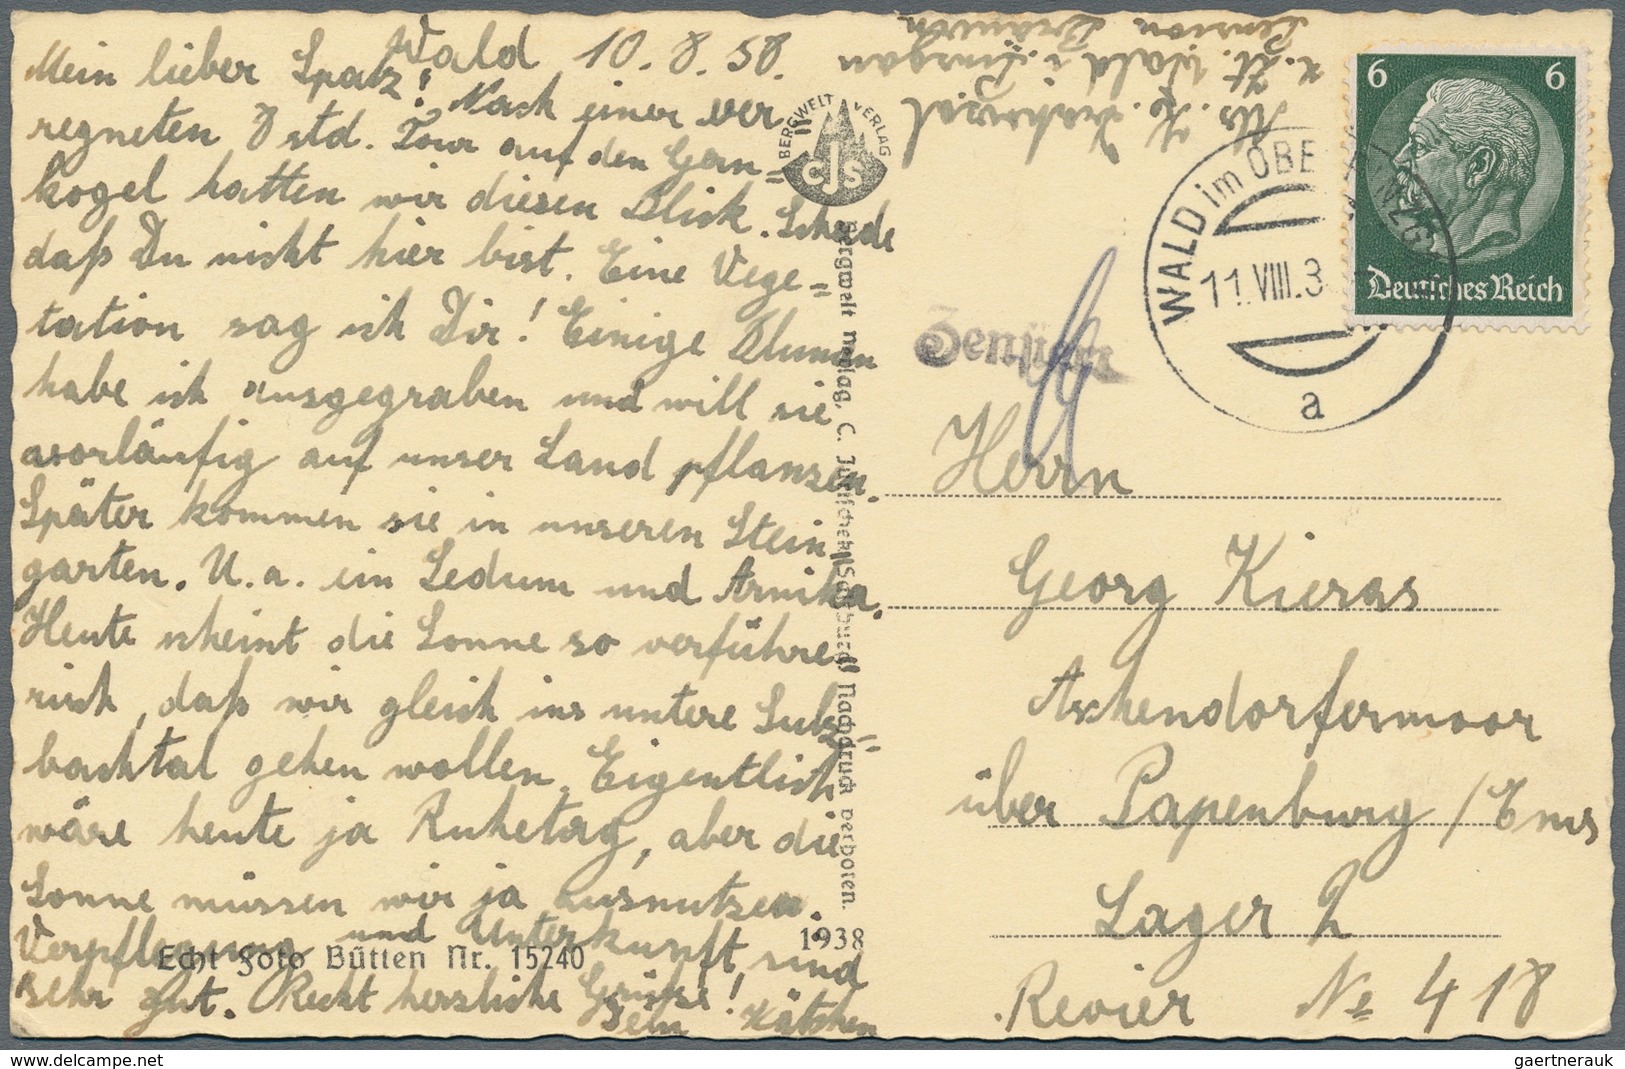 Wald 10.8.38.
Mein lieber Spatz! Nach einer ver
regneten 8 std. Tour auf den Gern=
kogel hatten wir diesen Blick. Schade
daß Du nicht hier bist. Eine Vege=
tation sag ich Dir! Einige Blumen
habe ich ausgegraben und will sie
vorläufig auf unser Land pflanzen.
Später kommen sie in unseren Stein
garten. U.a. ein Sedum und Arnika.
Heute scheint die Sonne so verführe
risch, daß wir gleich ins untere Sulz=
bachtal gehen wollen. Eigentlich
wäre heute ja Ruhetag, aber die
Sonne müssen wir ja ausnutzen.
Verpflegung und Unterkunft sind
sehr gut. Recht herzliche Grüße!
Dein Kätchen
Echt Foto Bütten Nr. 15240
1938
BERGWELT VERLAG
CJS
Bergwelt Verlag, C. Salzburg Nachdruck verboten.
Abs. K.
z. Zt. Wald i. Pinzgau
Pension
WALD im OBERPINZG
11.VIII.3
a
6 6
Deutsches Reich
Zensiert
Herrn
Georg Kieras
Aschendorfermoor
über Papenburg / Ems
Lager 2
Revier № 418
gaertnerauk